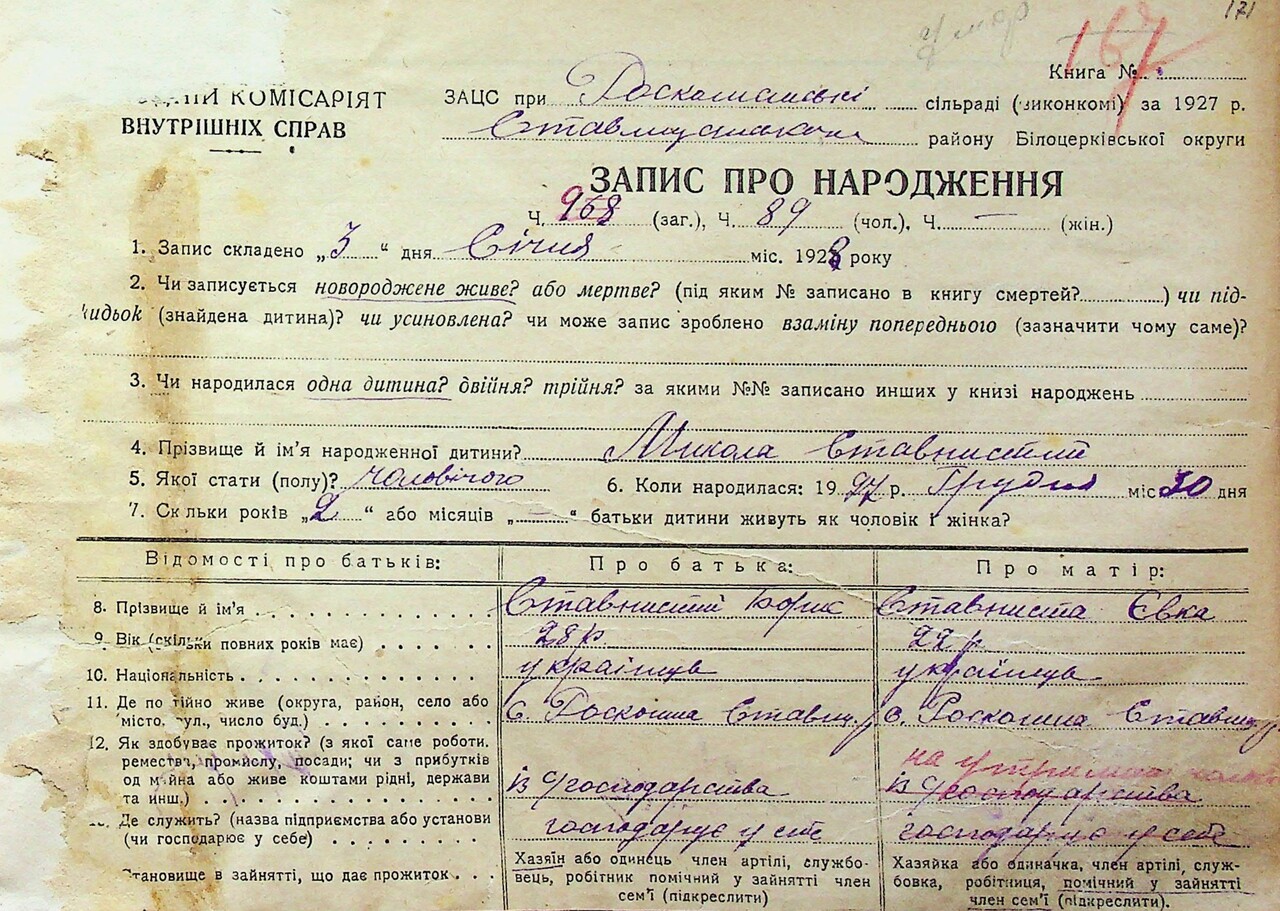 171
167
Книга №
КОМІСАРІЯТ
ВНУТРІШНІХ СПРАВ
ЗАЦС при сільраді (виконкомі) за 1927 р.
району Білоцерківської округи
ЗАПИС ПРО НАРОДЖЕННЯ
Ч. 968 (заг.), Ч. 89 (чол.), Ч. — (жін.)
1. Запис складено „3“ дня Січня міс. 1928 року
2. Чи записується новороджене живе? або мертве? (під яким № записано в книгу смертей?..........) чи під-
кидьок (знайдена дитина)? чи усиновлена? чи може запис зроблено взаміну попереднього (зазначити чому саме)?
3. Чи народилася одна дитина? двійня? трійня? за якими №№ записано инших у книзі народжень
4. Прізвище й ім’я народженної дитини? Микола Ставнистий
5. Якої стати (полу)? чоловічого 6. Коли народилася: 1927 р. Грудня міс 30 дня
7. Скільки років „2“ або місяців „—“ батьки дитини живуть як чоловік і жінка?
Відомості про батьків: Про батька: Про матір:
8. Прізвище й ім’я Ставнистий Ставниста Євка
9. Вік (скільки повних років має) 28 р 22 р
10. Національність українець українець
11. Де постійно живе (округа, район, село або
місто, вул., число буд.) с. Роскошна с. Роскошна
12. Як здобуває прожиток? (з якої саме роботи,
ремества, промислу, посади; чи з прибутків
од майна або живе коштами рідні, держави
та инш.) із господарства із господарства
на
Де служить? (назва підприємства або установи
(чи господарює у себе) господарює у себе господарює у себе
Становище в зайнятті, що дає прожиток
Хазяїн або одинець член артілі, службо-
вець, робітник помічний у зайнятті член
сем’ї (підкреслити)
Хазяйка або одиначка, член артілі, служ-
бовка, робітниця, помічний у зайнятті
член сем’ї (підкреслити).